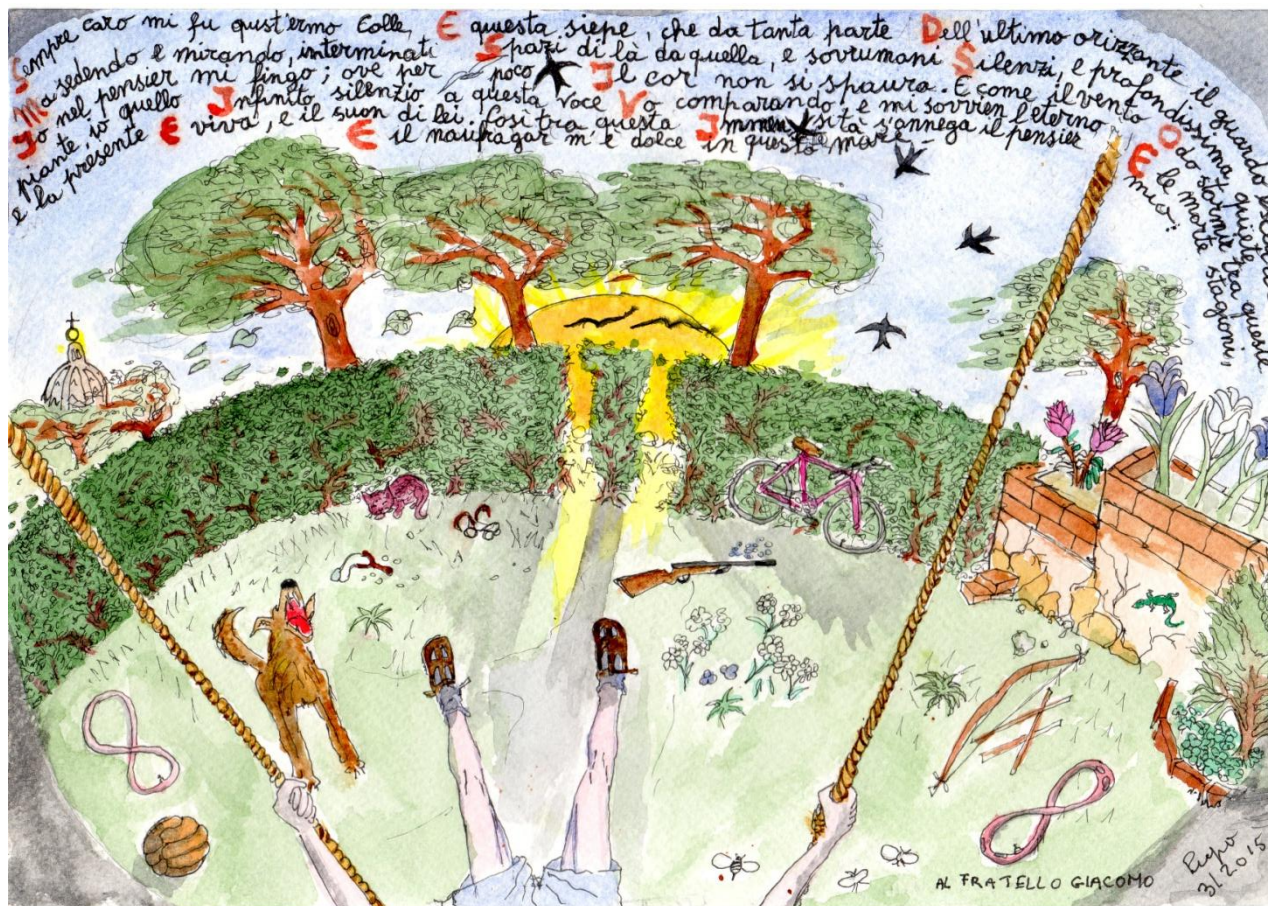 Sempre caro mi fu qust'ermo Colle, E quiesta siepe, che da tanta parte Dell'ultimo orizzante il guardo
Ma sedendo e mirando, interminati Spazi di là da quella, e sovrumani Silenzi, e profondissima quiete
Io nel pensier mi fingo; ove per poco Il cor non si spaura. E come il vento Odo stormir tra queste
piante, io quello Infinito silenzio a questa voce Vo comparando, e mi sovvien l'eterno E le morte stagioni,
e la presente E viva, e il suon di lei. Così tra questa Immensità s'annega il pensier mio:
E il naufragar m'è dolce in questo mare.
AL FRATELLO GIACOMO
3/2015